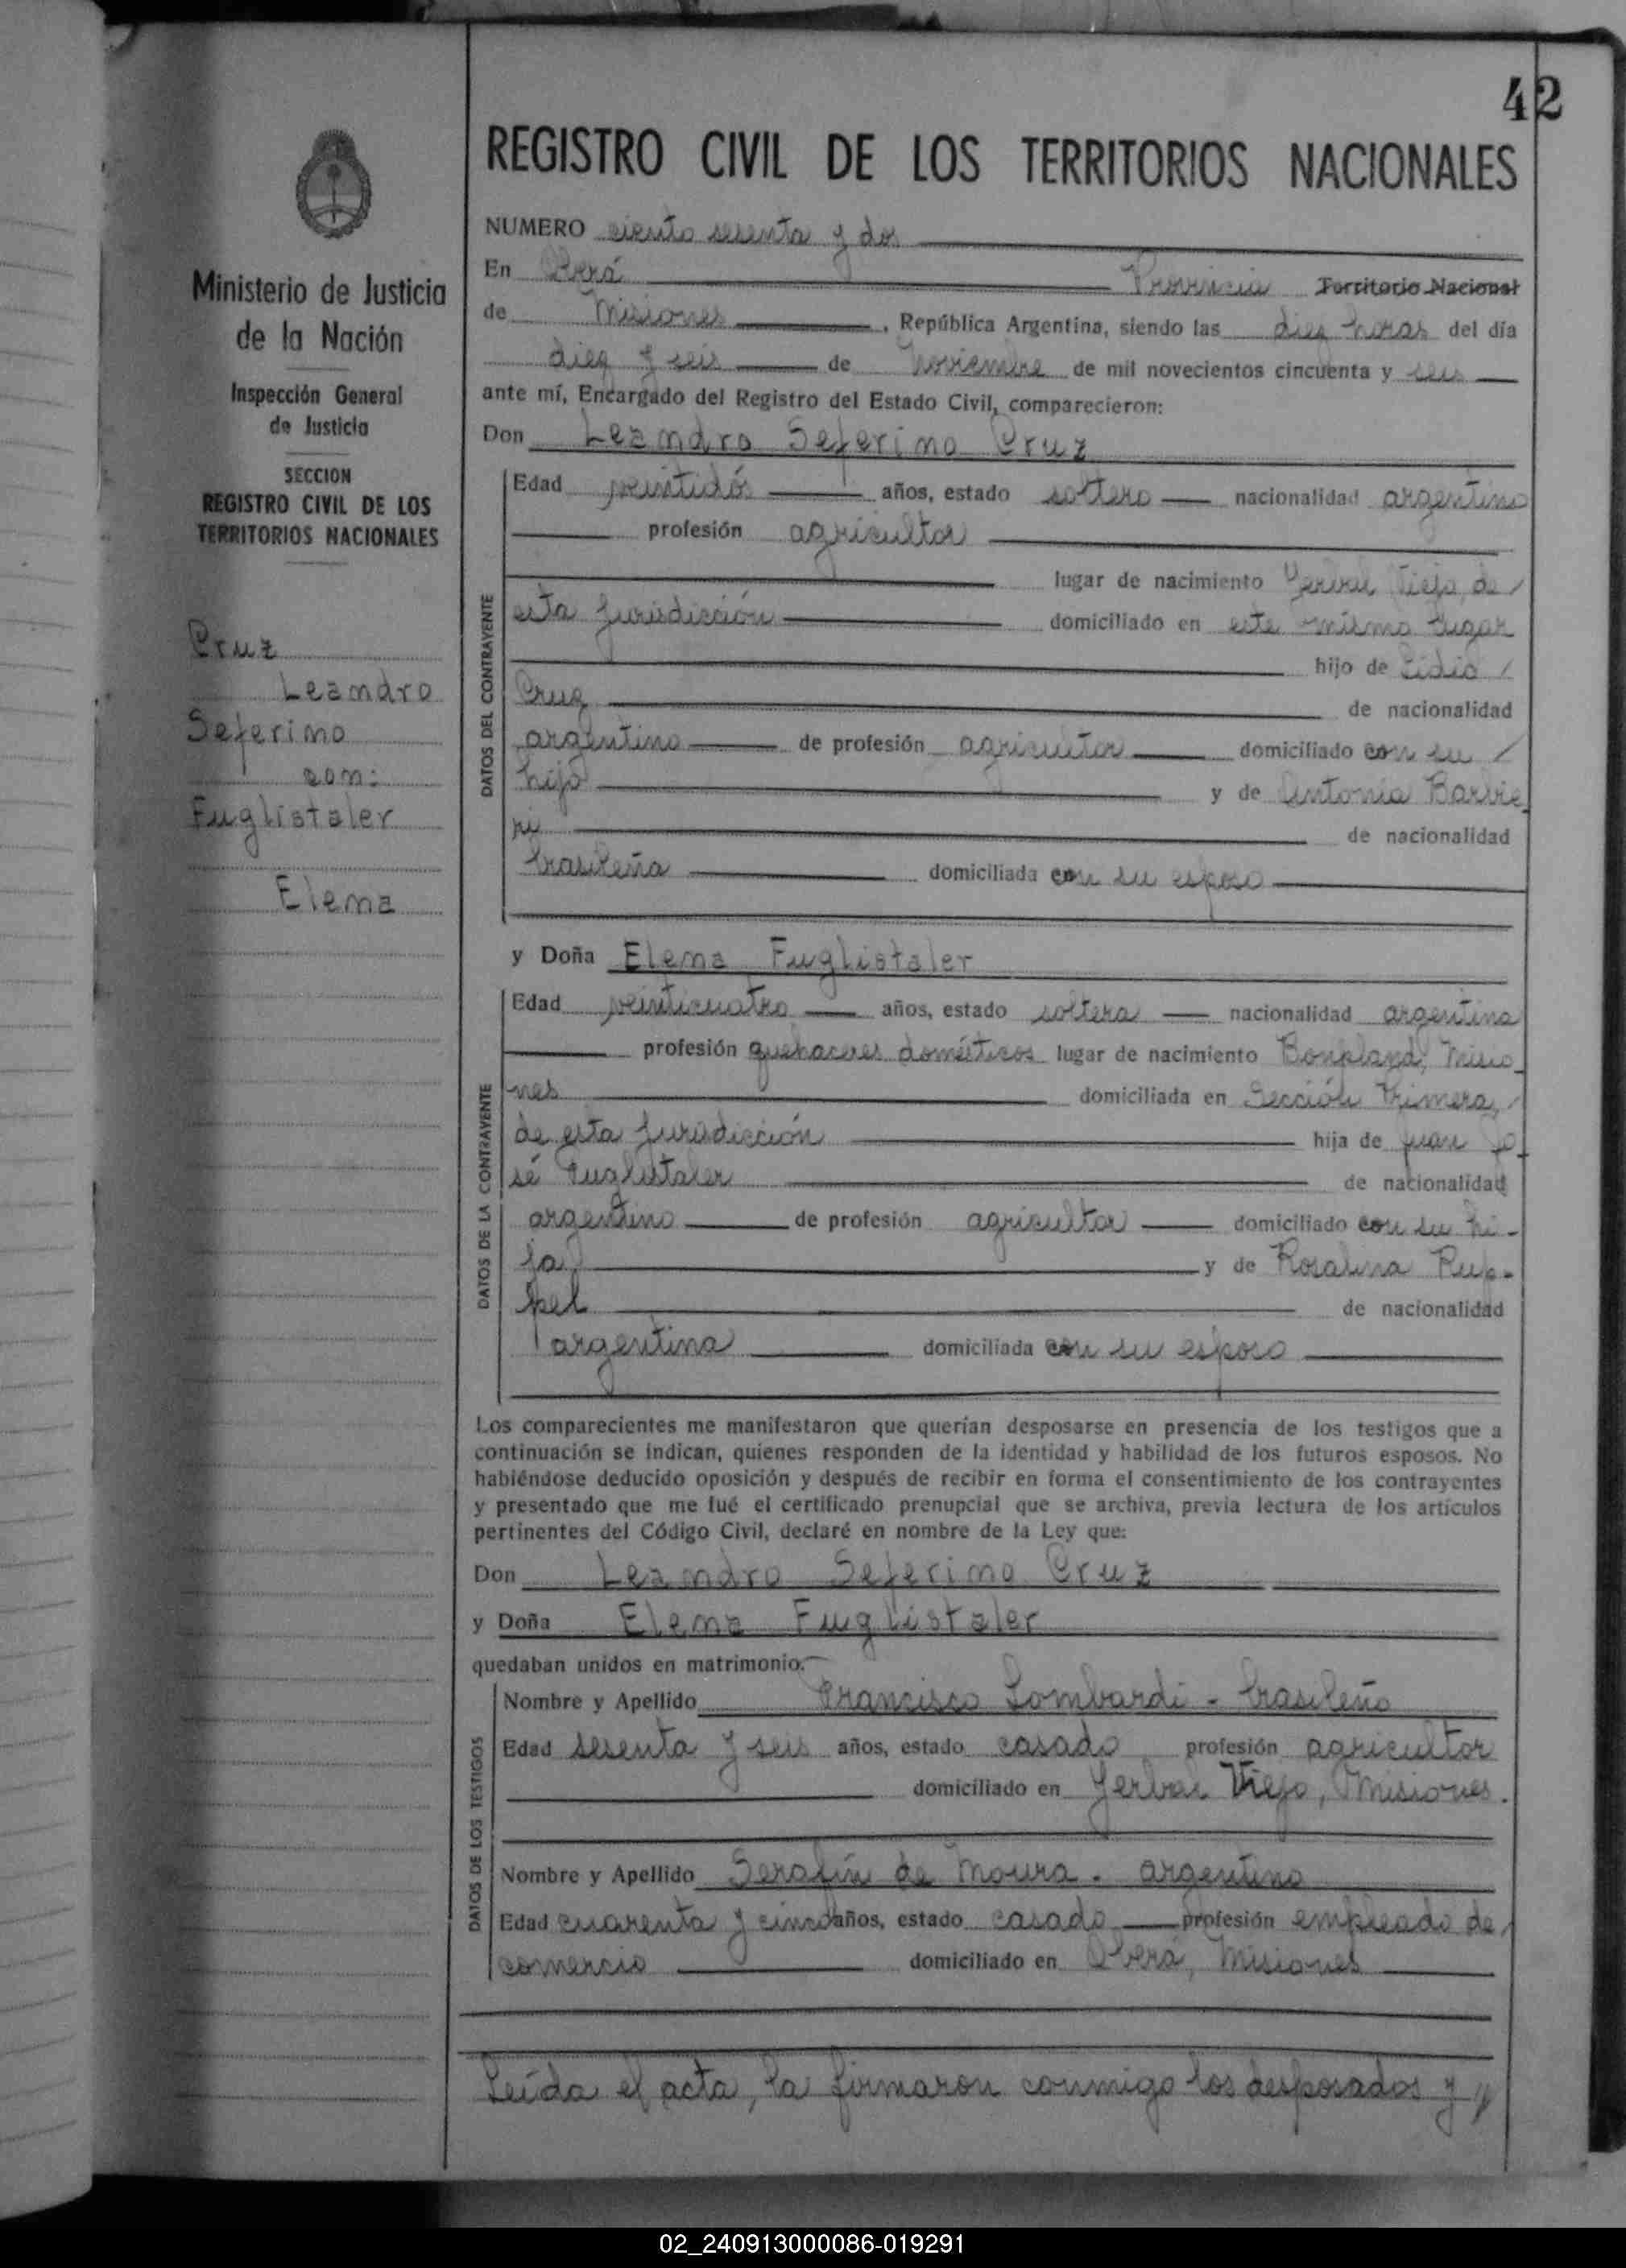 42
REGISTRO CIVIL DE LOS TERRITORIOS NACIONALES
Ministerio de Justicia
de la Nación
Inspección General
de Justicia
SECCION
REGISTRO CIVIL DE LOS
TERRITORIOS NACIONALES
Cruz
Leandro
Seferino
con:
Fuglistaler
Elena
NUMERO ciento sesenta y dos
En Oberá Provincia Territorio Nacional
de Misiones, República Argentina, siendo las diez horas del día
diez y seis de Noviembre de mil novecientos cincuenta y seis
ante mí, Encargado del Registro del Estado Civil, comparecieron:
Don Leandro Seferino Cruz
DATOS DEL CONTRAYENTE
Edad veintidós años, estado soltero nacionalidad argentino
profesión agricultor
lugar de nacimiento Yerbal Viejo, de
esta jurisdicción domiciliado en este mismo lugar
hijo de Lidio
Cruz de nacionalidad
argentino de profesión agricultor domiciliado con su
hijo y de Antonia Barbie
ri de nacionalidad
brasileña domiciliada con su esposo
y Doña Elena Fuglistaler
DATOS DE LA CONTRAYENTE
Edad veinticuatro años, estado soltera nacionalidad argentina
profesión quehaceres domésticos lugar de nacimiento Bonpland, Misio
nes domiciliada en Sección Primera,
de esta jurisdicción hija de Juan Jo
sé Fuglistaler de nacionalidad
argentino de profesión agricultor domiciliado con su hi-
ja y de Rosalina Rup-
pel de nacionalidad
argentina domiciliada con su esposo
Los comparecientes me manifestaron que querían desposarse en presencia de los testigos que a
continuación se indican, quienes responden de la identidad y habilidad de los futuros esposos. No
habiéndose deducido oposición y después de recibir en forma el consentimiento de los contrayentes
y presentado que me fué el certificado prenupcial que se archiva, previa lectura de los artículos
pertinentes del Código Civil, declaré en nombre de la Ley que:
Don Leandro Seferino Cruz
y Doña Elena Fuglistaler
quedaban unidos en matrimonio.
DATOS DE LOS TESTIGOS
Nombre y Apellido Francisco Lombardi - brasileño
Edad sesenta y seis años, estado casado profesión agricultor
domiciliado en Yerbal Viejo, Misiones.
Nombre y Apellido Serafín de Moura - argentino
Edad cuarenta y cinco años, estado casado profesión empleado de
comercio domiciliado en Oberá, Misiones
Leída el acta, la firmaron conmigo los desposados y
02_240913000086-019291